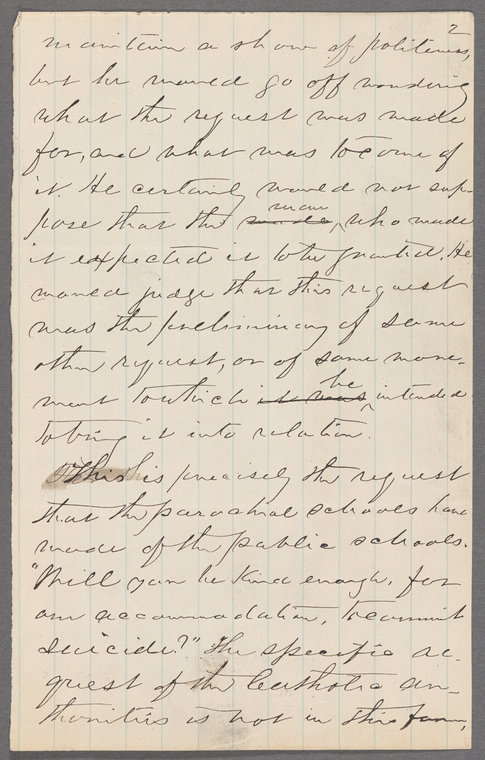 2
maintain a show of politeness,
but he would go off wondering
what the request was made
for, and what was to come of
it. He certainly would not sup-
pose that the made, man, who made
it expected it to be granted. He
would judge that this request
was the preliminary of some
other request, or of some move-
ment to which it was he intended
to bring it into relation.
This is precisely the request
that the parochial schools have
made of the public schools.
"Will you be kind enough, for
our accommodation, to commit
suicide?" The specific re-
quest of the Catholic au-
thorities is not in this form,